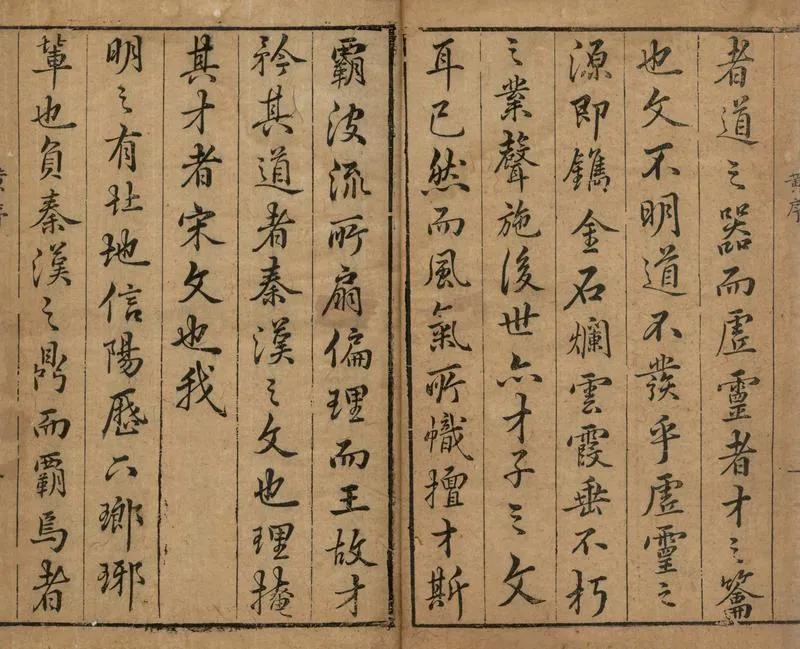 黃序
者道之器而虛靈者才之籥
也文不明道不發乎虛靈之
源即鐫金石爛雲霞垂不朽
之業聲施後世亦才子之文
耳已然而風氣所幟擅才斯
霸波流所扇偏理而王故才
矜其道者秦漢之文也理掩
其才者宋文也我
明之有北地信陽歷下瑯琊
輩也負秦漢之鼎而霸焉者